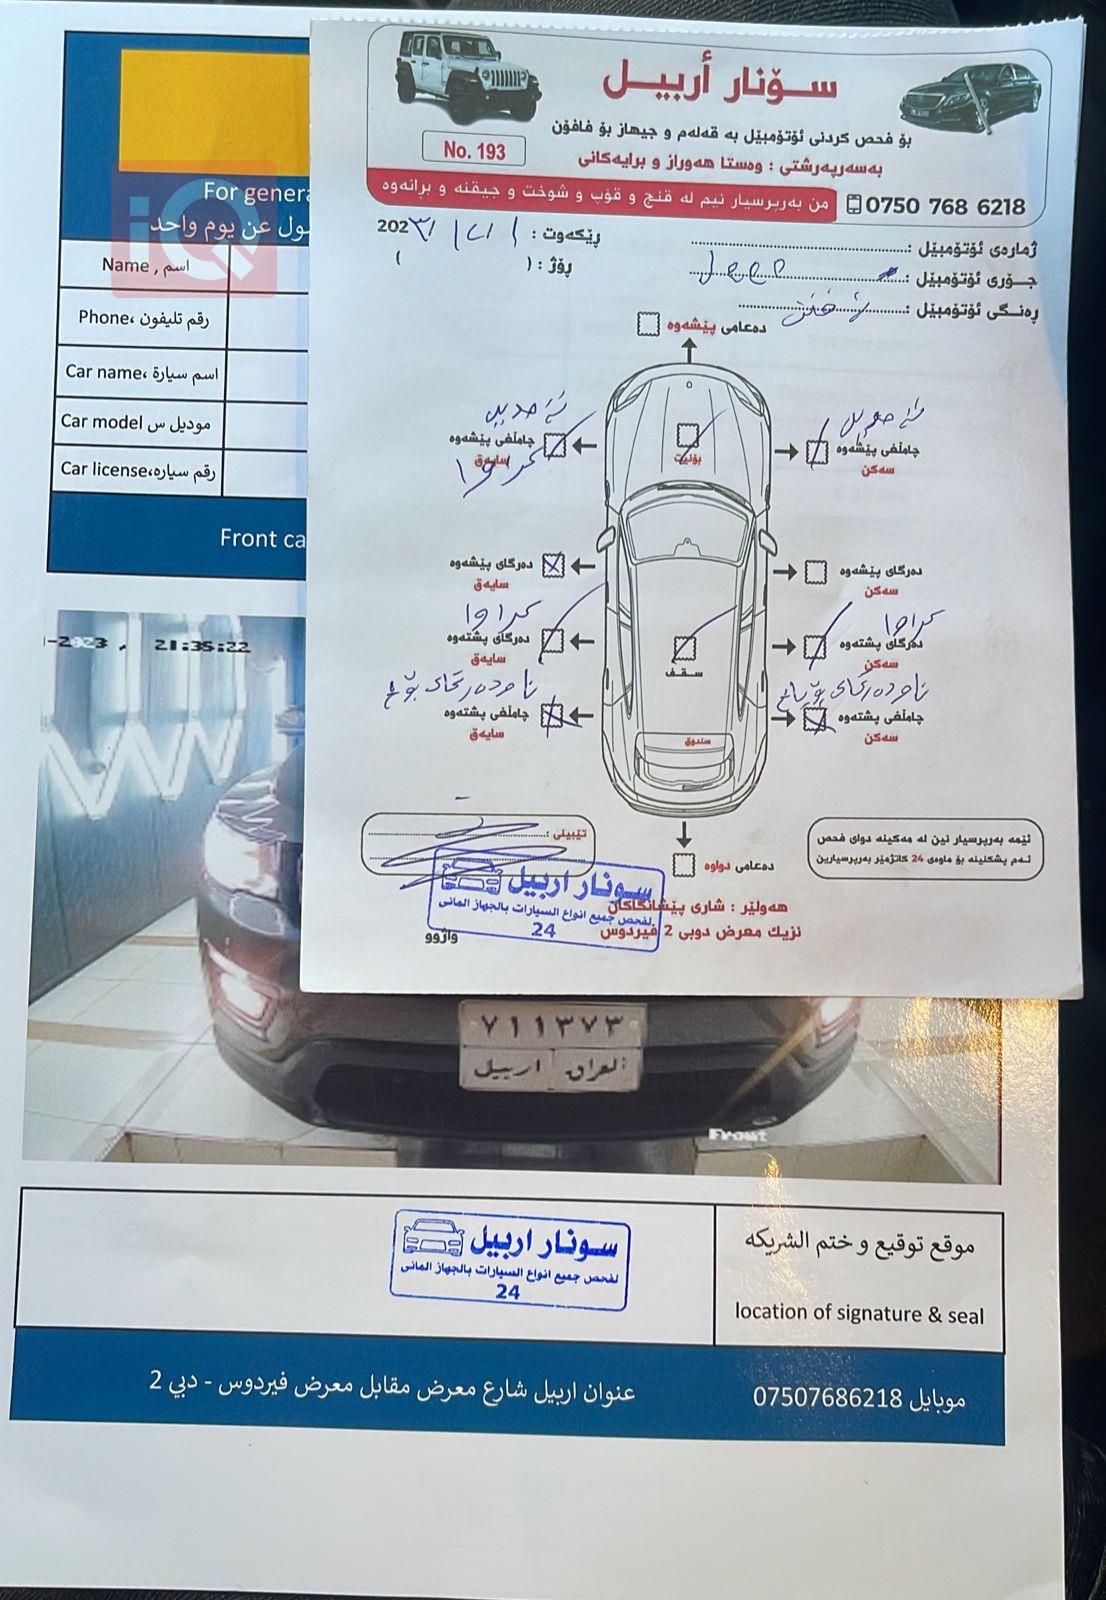 سۆنار أربيل
بۆ فحص کردنی ئۆتۆمبێل بە قەلەم و جیهاز بۆ فافۆن
No. 193
بەسەرپەرشتی : وەستا هەوراز و برایەکانی
من بەرپرسیار نیم لە قنج و قۆپ و شوخت و جیقنە و بڕانەوە
0750 768 6218
ژمارەی ئۆتۆمبێل :
ڕێکەوت : ١ / ١٢ / 202٣
جۆری ئۆتۆمبێل :
ڕۆژ : ( )
ڕەنگی ئۆتۆمبێل :
دەعامی پێشەوە
چامڵغی پێشەوە
سایەق
بۆنیت
چامڵغی پێشەوە
سەکن
دەرگای پێشەوە
سایەق
دەرگای پێشەوە
سەکن
کراوا
دەرگای پشتەوە
سایەق
سقف
کراوا
دەرگای پشتەوە
سەکن
چامڵغی پشتەوە
سایەق
سندوق
چامڵغی پشتەوە
سەکن
تێبینی :
دەعامی دواوە
ئێمە بەرپرسیار نین لە مەکینە دوای فحص
ئەم پشکنینە بۆ ماوەی 24 کاتژمێر بەرپرسیارین
سونار اربيل
لفحص جميع انواع السيارات بالجهاز المانی
24
هەولێر : شاری پێشانگاکان
نزیك معرض دوبی 2 فیردوس
واژوو
For genera
ول عن يوم واحد
Name , اسم
Phone، رقم تليفون
Car name، اسم سيارة
Car model موديل س
Car license، رقم سياره
Front ca
-2023 21:35:22
٧١١٣٧٣
العراق اربيل
Front
سونار اربيل
لفحص جميع انواع السيارات بالجهاز المانی
24
موقع توقيع و ختم الشريكه
location of signature & seal
عنوان اربيل شارع معرض مقابل معرض فيردوس - دبي 2
موبايل 07507686218
iQ